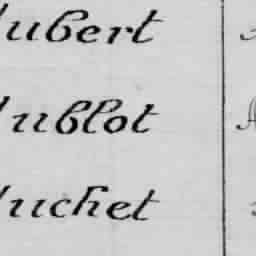 Hubert
Hublot
Huchet